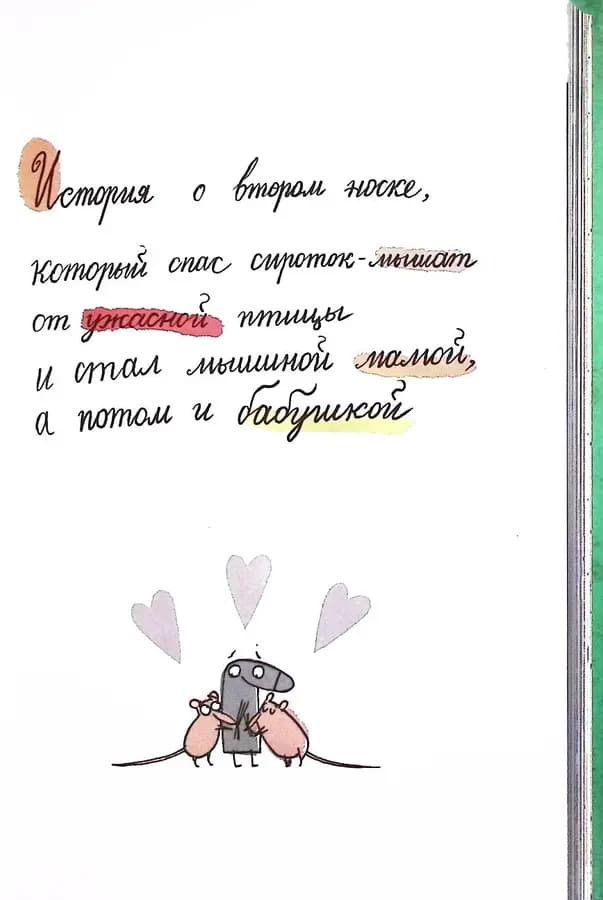 История о втором носке,
который спас сироток-мышат
от ужасной птицы
и стал мышиной мамой,
а потом и бабушкой